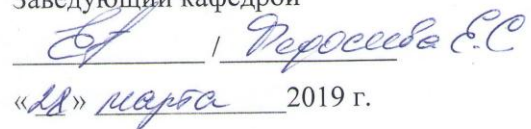 Заведующий кафедрой
/ Федосеева Е.С
«28» марта 2019 г.